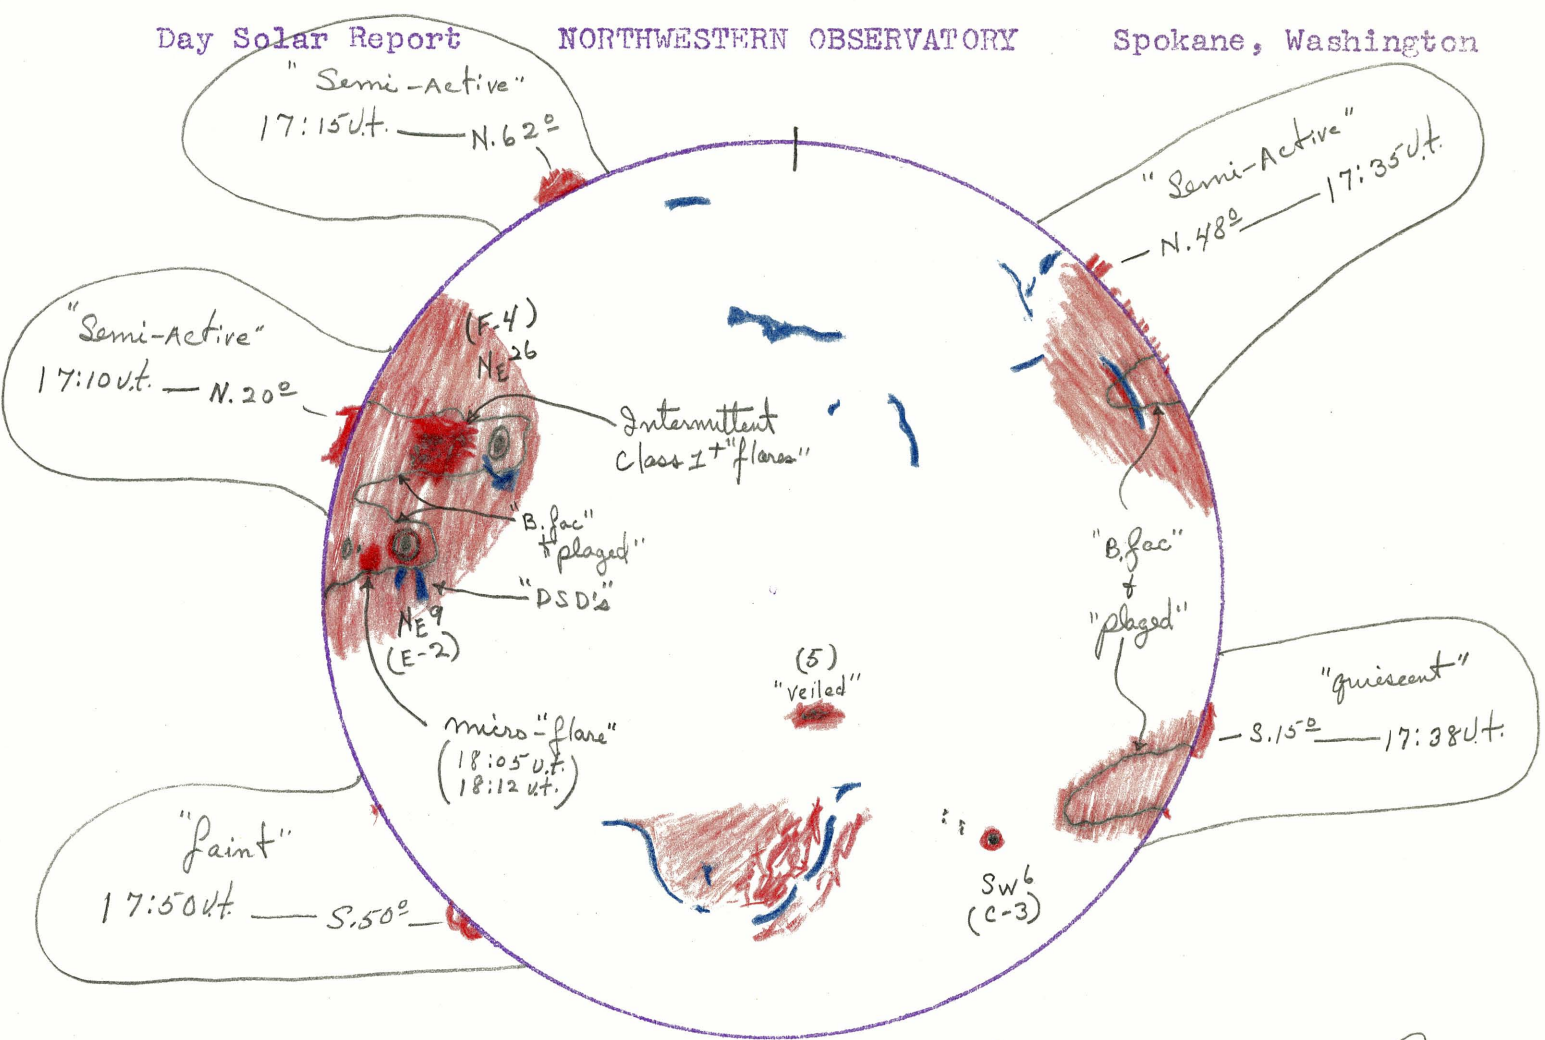 Day Solar Report NORTHWESTERN OBSERVATORY Spokane, Washington
"Semi-Active"
17:15 U.t. — N.62º
"Semi-Active"
N.48º — 17:35 U.t.
"Semi-Active"
17:10 U.t. — N.20º
(F-4)
NE26
Intermittent
Class 1+ "flares"
"B.fac"
+ "plaged"
"DSD's"
NE9
(E-2)
micro-"flare"
(18:05 U.t.
18:12 U.t.)
"B.fac"
+
"plaged"
(5)
"veiled"
"quiescent"
S.15º — 17:38 U.t.
"faint"
17:50 U.t. — S.50º
SW6
(C-3)